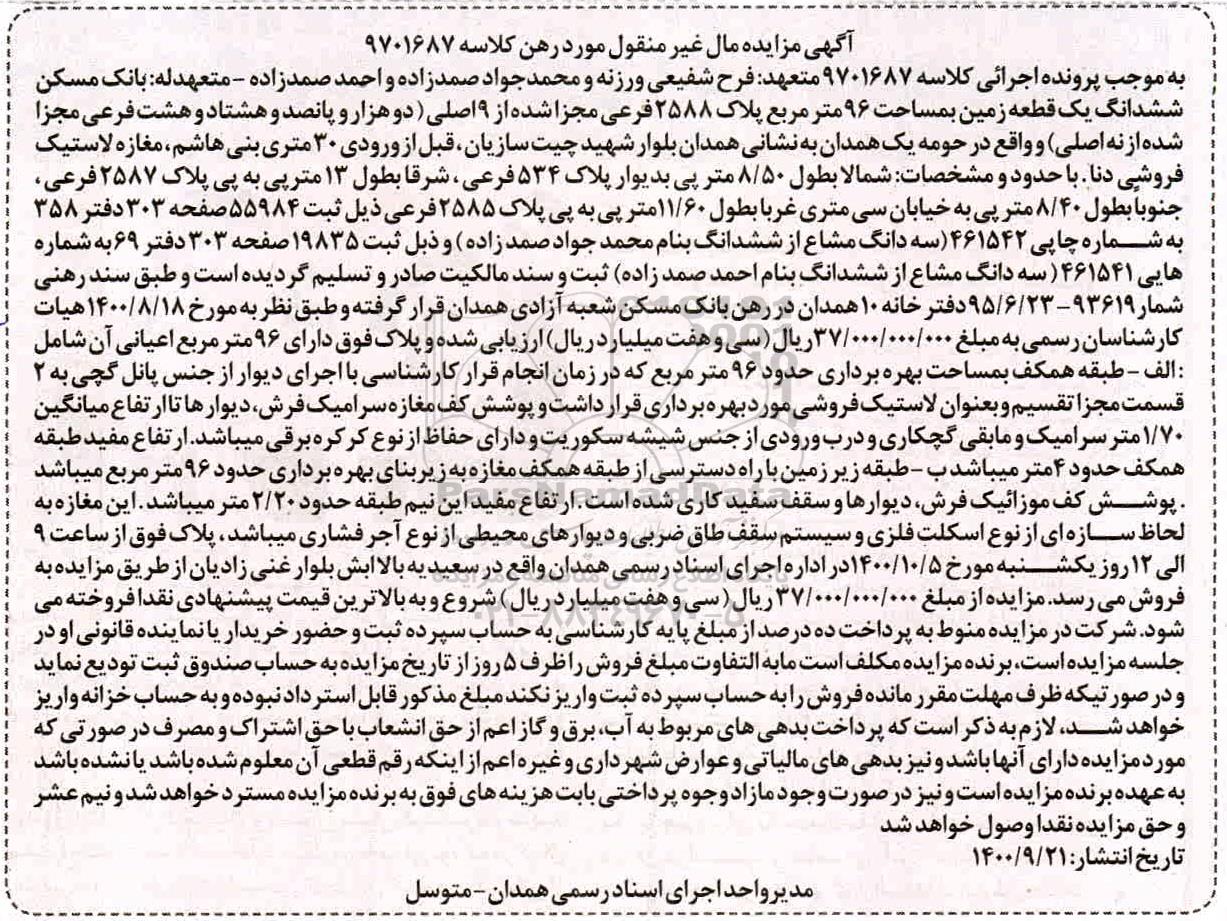 آگهی مزایده مال غیر منقول مورد رهن کلاسه ۹۷۰۱۶۸۷
به موجب پرونده اجرائی کلاسه ۹۷۰۱۶۸۷ متعهد: فرح شفیعی ورزنه و محمدجواد صمدزاده و احمد صمدزاده -متعهدله: بانک مسکن
ششدانگ یک قطعه زمین بمساحت ۹۶ متر مربع پلاک ۲۵۸۸ فرعی مجزا شده از ۹ اصلی (دو هزار و پانصد و هشتاد و هشت فرعی مجزا
شده از نه اصلی) و واقع در حومه یک همدان به نشانی همدان بلوار شهید چیت سازیان، قبل از ورودی ۳۰ متری بنی هاشم، مغازه لاستیک
فروشی دنا. با حدود و مشخصات: شمالا بطول ۸/۵۰ متر پی بدیوار پلاک ۵۳۴ فرعی، شرقا بطول ۱۳ مترپی به پی پلاک ۲۵۸۷ فرعی،
جنوباً بطول ۸/۴۰ متر پی به خیابان سی متری غربا بطول ۱۱/۶۰متر پی به پی پلاک ۲۵۸۵ فرعی ذیل ثبت ۵۵۹۸۴ صفحه ۳۰۳ دفتر ۳۵۸
به شماره چاپی ۴۶۱۵۴۲ (سه دانگ مشاع از ششدانگ بنام محمد جواد صمد زاده) و ذبل ثبت ۱۹۸۳۵ صفحه ۳۰۳ دفتر ۶۹ به شماره
هایی ۴۶۱۵۴۱ (سه دانگ مشاع از ششدانگ بنام احمد صمد زاده) ثبت و سند مالکیت صادر و تسلیم گردیده است و طبق سند رهنی
شمار ۹۳۶۱۹ - ۹۵/۶/۲۳ دفتر خانه ۱۰ همدان در رهن بانک مسکن شعبه آزادی همدان قرار گرفته و طبق نظر به مورخ ۱۴۰۰/۸/۱۸ هیات
کارشناسان رسمی به مبلغ ۳۷/۰۰۰/۰۰۰/۰۰۰ ریال (سی و هفت میلیارد ریال) ارزیابی شده و پلاک فوق دارای ۹۶ متر مربع اعیانی آن شامل
:الف -طبقه همکف بمساحت بهره برداری حدود ۹۶ متر مربع که در زمان انجام قرار کارشناسی با اجرای دیوار از جنس پانل گچی به ۲
قسمت مجزا تقسیم و بعنوان لاستیک فروشی مورد بهره برداری قرار داشت و پوشش کف مغازه سرامیک فرش، دیوار ها تا ارتفاع میانگین
۱/۷۰ متر سرامیک و مابقی گچکاری و درب ورودی از جنس شیشه سکوریت و دارای حفاظ از نوع کرکره برقی میباشد. ارتفاع مفید طبقه
همکف حدود ۴ متر میباشد ب -طبقه زیر زمین با راه دسترسی از طبقه همکف مغازه به زیر بنای بهره برداری حدود ۹۶ متر مربع میباشد
. پوشش کف موزائیک فرش، دیوارها و سقف سفید کاری شده است. ارتفاع مفید این نیم طبقه حدود ۲/۲۰ متر میباشد. این مغازه به
لحاظ سازه ای از نوع اسکلت فلزی و سیستم سقف طاق ضربی و دیوارهای محیطی از نوع آجر فشاری میباشد، پلاک فوق از ساعت ۹
الی ۱۲ روز یکشنبه مورخ ۱۴۰۰/۱۰/۵ در اداره اجرای اسناد رسمی همدان واقع در سعیدیه بالا نبش بلوار غنی زادیان از طریق مزایده به
فروش می رسد. مزایده از مبلغ ۳۷/۰۰۰/۰۰۰/۰۰۰ ریال (سی و هفت میلیارد ریال) شروع و به بالاترین قیمت پیشنهادی نقدا فروخته می
شود. شرکت در مزایده منوط به پرداخت ده درصد از مبلغ پایه کارشناسی به حساب سپرده ثبت و حضور خریدار یا نماینده قانونی او در
جلسه مزایده است، برنده مزایده مکلف است مابه التفاوت مبلغ فروش را ظرف ۵ روز از تاریخ مزایده به حساب صندوق ثبت تودیع نماید
و در صورتیکه ظرف مهلت مقرر مانده فروش را به حساب سپرده ثبت واریز نکند مبلغ مذکور قابل استرداد نبوده و به حساب خزانه واریز
خواهد شد، لازم به ذکر است که پرداخت بدهی های مربوط به آب، برق و گاز اعم از حق انشعاب با حق اشتراک و مصرف در صورتی که
مورد مزایده دارای آنها باشد و نیز بدهی های مالیاتی و عوارض شهرداری و غیره اعم از اینکه رقم قطعی آن معلوم شده باشد یا نشده باشد
به عهده برنده مزایده است و نیز در صورت وجود مازاد وجوه پرداختی بابت هزینه های فوق به برنده مزایده مسترد خواهد شد و نیم عشر
و حق مزایده نقدا وصول خواهد شد
تاریخ انتشار: ۱۴۰۰/۹/۲۱
مدیر واحد اجرای اسناد رسمی همدان -متوسل
ParsNamadData
۰۲۱-۸۸۳۴۹۶۷۰-۵